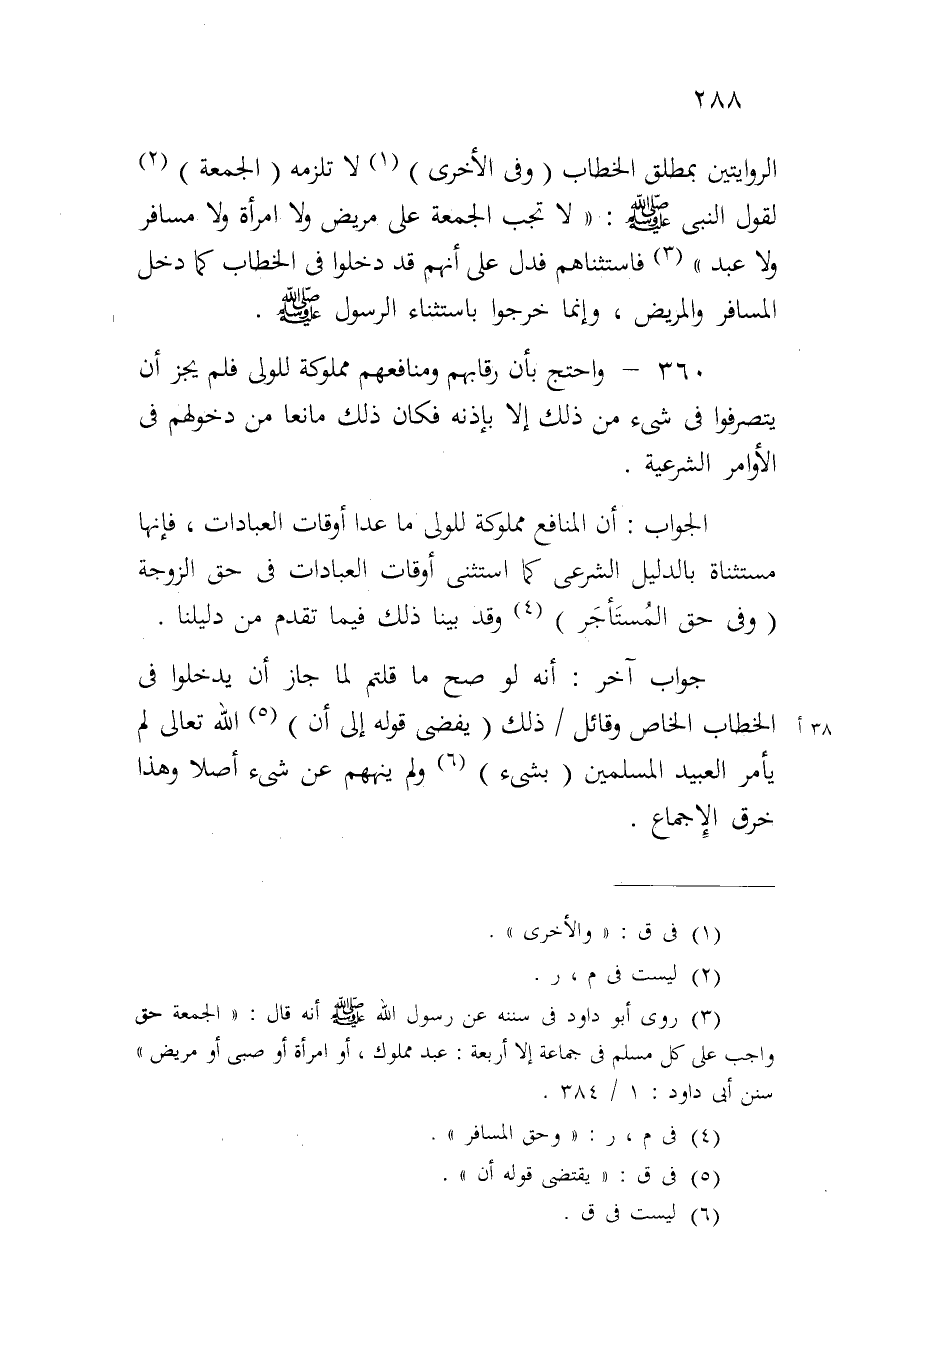 ٢٨٨
الروايتين بمطلق الخطاب ( وفى الأخرى ) (١) لا تلزمه ( الجمعة ) (٢)
لقول النبى ﷺ : « لا تجب الجمعة على مريض ولا امرأة ولا مسافر
ولا عبد » (٣) فاستثناهم فدل على أنهم قد دخلوا فى الخطاب كما دخل
المسافر والمريض ، وإنما خرجوا باستثناء الرسول ﷺ .
٣٦٠ – واحتج بأن رقابهم ومنافعهم مملوكة للولى فلم يجز أن
يتصرفوا فى شىء من ذلك إلا بإذنه فكان ذلك مانعا من دخولهم فى
الأوامر الشرعية .
الجواب : أن المنافع مملوكة للولى ما عدا أوقات العبادات ، فإنها
مستثناة بالدليل الشرعى كما استثنى أوقات العبادات فى حق الزوجة
( وفى حق المُستَأجَر ) (٤) وقد بينا ذلك فيما تقدم من دليلنا .
جواب آخر : أنه لو صح ما قلتم لما جاز أن يدخلوا فى
٣٨ أ الخطاب الخاص وقائل / ذلك ( يفضى قوله إلى أن ) (٥) الله تعالى لم
يأمر العبيد المسلمين ( بشىء ) (٦) ولم ينههم عن شىء أصلا وهذا
خرق الإجماع .
(١) فى ق : « والأخرى » .
(٢) ليست فى م ، ر .
(٣) روى أبو داود فى سننه عن رسول الله ﷺ أنه قال : « الجمعة حق
واجب على كل مسلم فى جماعة إلا أربعة : عبد مملوك ، أو امرأة أو صبى أو مريض »
سنن أبى داود : ١ / ٣٨٤ .
(٤) فى م ، ر : « وحق المسافر » .
(٥) فى ق : « يقتضى قوله أن » .
(٦) ليست فى ق .